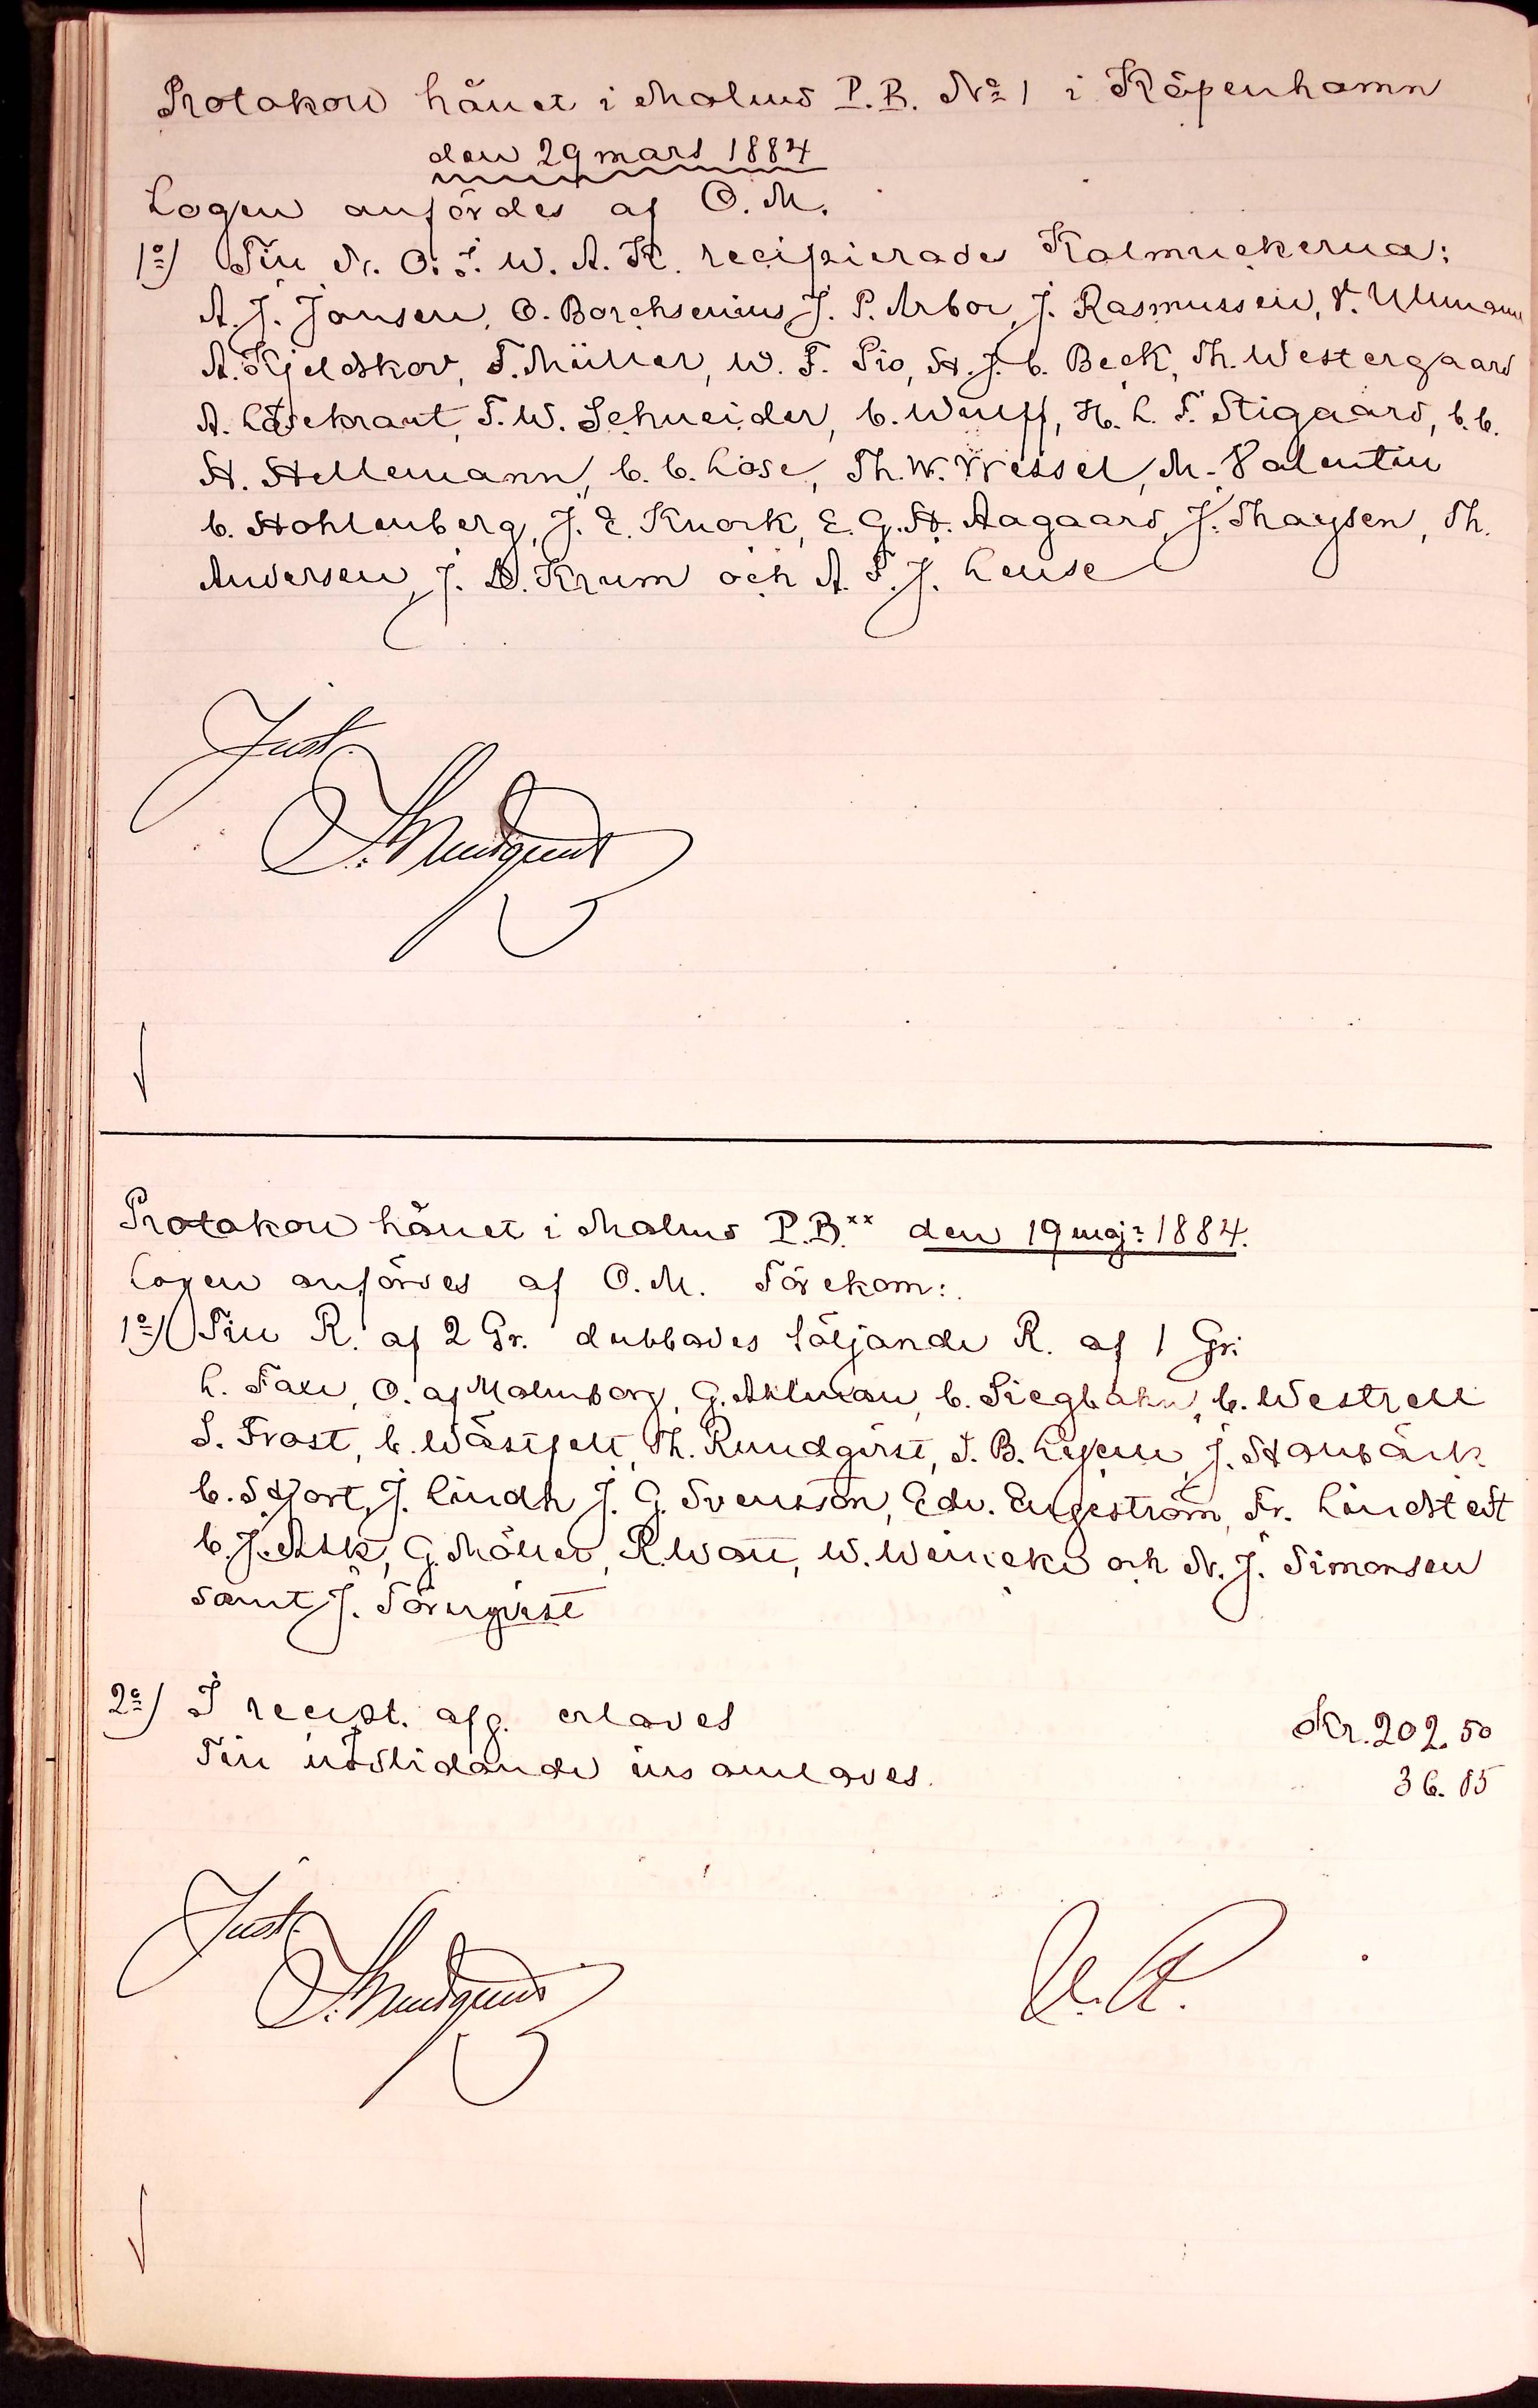 Protokoll hållet i Malmö P.B. No 1 i Köpenhamn
den 29 mars 1884
Logen anfördes af O.M.
1o) Till N. O. I. W. A. K. recipierades Kalmuckerna:
A. J. Jansen, O. Borchsenius J. P. Arboe, J. Rasmussen, V. Ullmann
A. Kjeldskov, F. Müller, W. F. Pio, H. J. C. Beck, Th. Westergaard
A. F. W. Schneider, C. Wulff, H. L. F. Stigaard, C. C.
H. Hellemann, C. C. Lose, Th. W. Wessel, M. Valentin
C. Hohlenberg, J. E. Knork, E. G. H. Aagaard, J. Thaysen, Th.
Andersen, J. D. Krum och A. F. J. Lense
Just.
Protokoll hållet i Malmö P.B.xx den 19 maj: 1884.
Logen anfördes af O.M. Förekom:
1o) Till R. af 2 Gr. dubbades följande R. af 1 Gr:
L. Falk, O. af Malmborg, G. Ahlman, C. Siegbahn, C. Westrell
S. Frost, C. Wästfelt, Th. Rundqvist, S. B. J. Stanbäck
C. Hjort, J. Lindh J. G. Svensson, Edv. Engeström, Fr. Lindstedt
C. J. Ask, G. Möller, R. Wall, W. Weincke och N. J. Simonsen
samt J. Törnqvist
2o) I recept. afg. erlades Kr. 202. 50
Till nödlidande insamlades. 36. 85
Just.